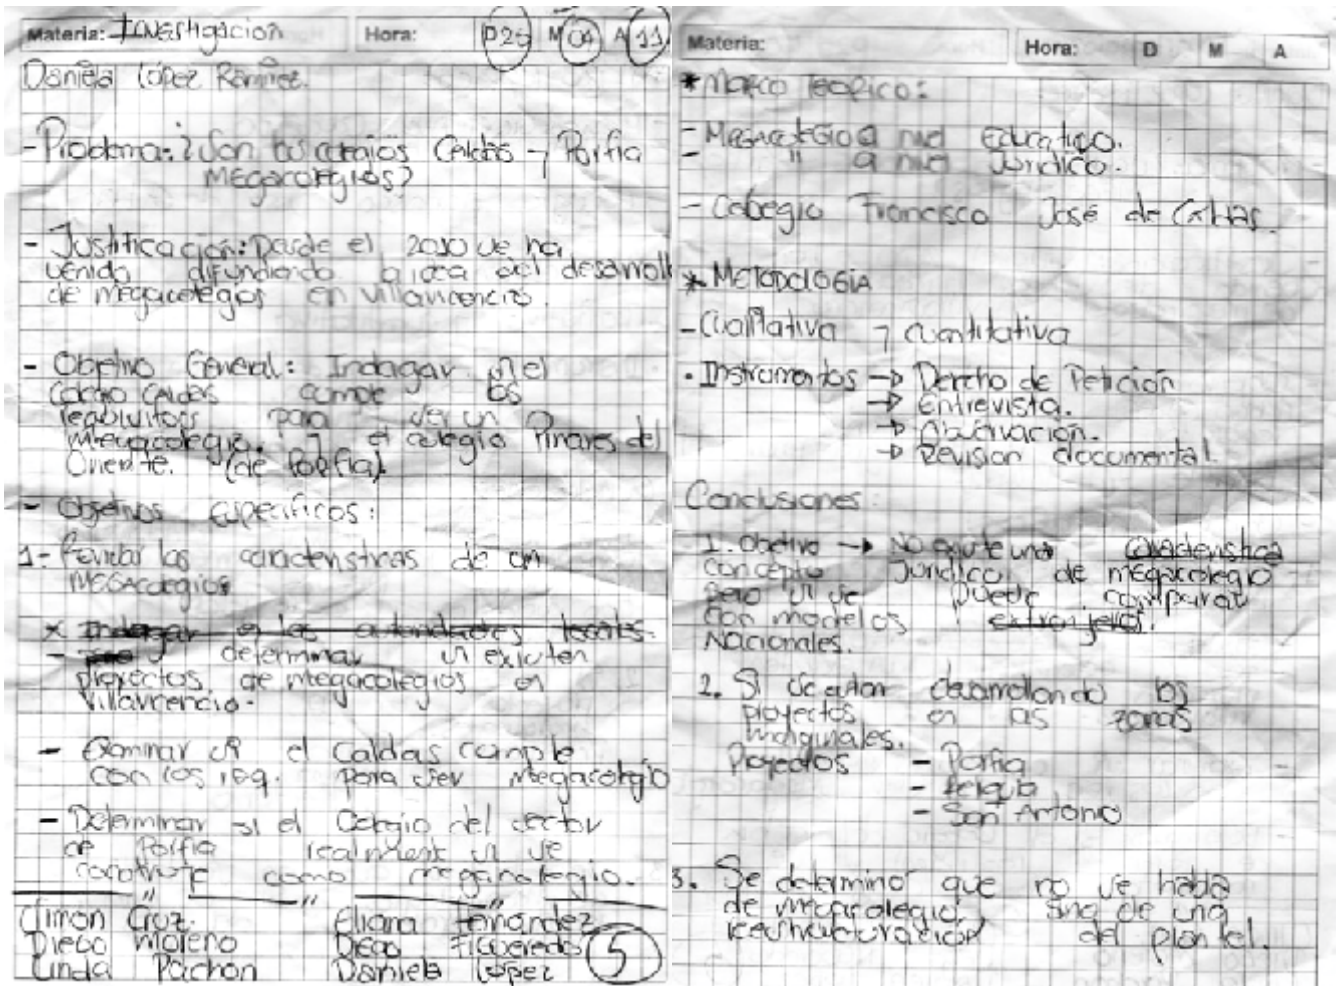 Materia: Investigación Hora: D 25 M 04 A 11
Daniela López Ramírez.
- Problema: ¿Son los colegios Caldas y Porfia
megacolegios?
- Justificación: Desde el 2010 se ha
venido difundiendo la idea del desarroll
de megacolegios en Villavicencio.
- Objetivo General: Indagar si el
Colegio Caldas cumple los
requisitos para ser un
megacolegio. y el colegio Pinares del
Oriente. (de Porfia)
- Objetivos específicos:
1- las características de un
MEGAcolegios
x Indagar en las autoridades locales.
- determinar si existen
proyectos de megacolegios en
Villavicencio.
- Examinar si el Caldas cumple
con los req. para ser megacolegio
- Determinar si el Colegio del sector
de Porfia realmente si se
construye como megacolegio.
Simon Cruz. Eliana Fernández
Diego Moreno Diego Figueredo
Linda Pachon Daniela López
5
Materia: Hora: D M A
* Marco Teorico:
- Megacolegio a nivel Educativo.
- " a nivel Jurídico.
- Colegio Francisco José de Caldas.
* METODOLOGIA
- Cualitativa y cuantitativa
- Instrumentos → Derecho de Petición
→ Entrevista.
→ Observación.
→ Revisión documental.
Conclusiones:
1. Objetivo → No existe una característica
concepto Jurídico, de megacolegio
pero si se puede comparar
con modelos extranjeros.
Nacionales.
2. Si se estan desarrollando los
proyectos en las zonas
marginales.
Proyectos - Porfia
-
- San Antonio
3. Se determinó que no se habla
de megacolegio, sino de una
reestructuración del plantel.